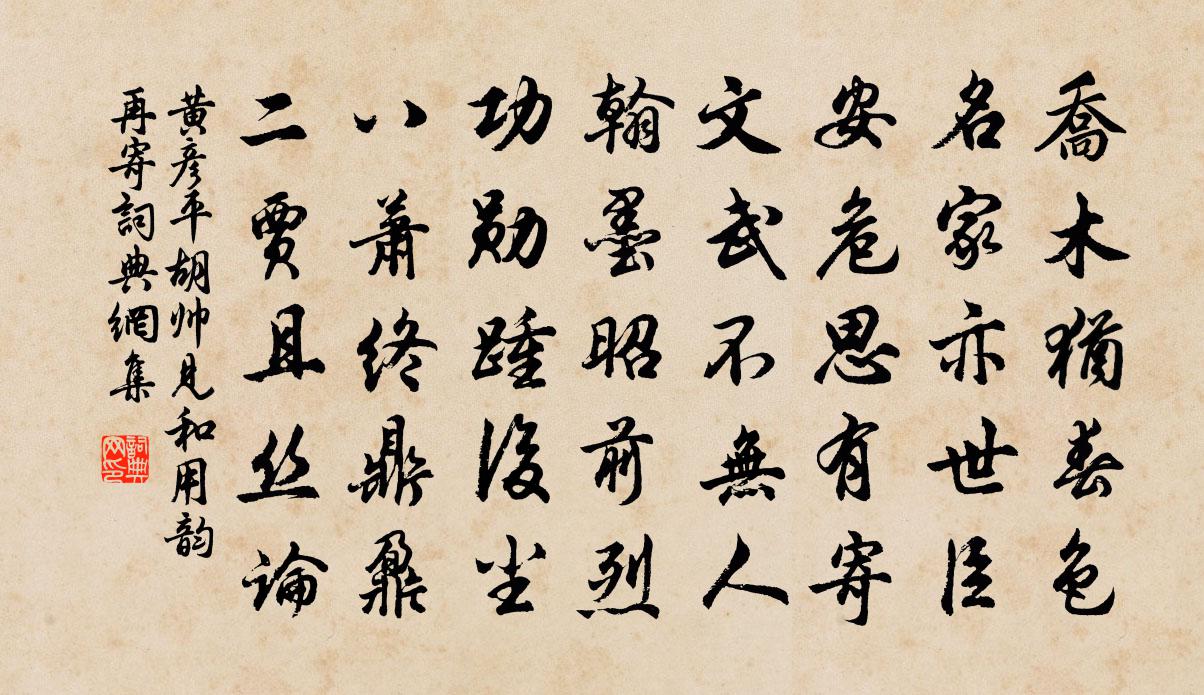 喬木猶春色
名家亦世臣
安危思有寄
文武不無人
翰墨昭前烈
功勋踵後尘
八萧终鼎鼐
二贾且丝論
黄彦平胡帅見和用韵
再寄詞典網集
詞典网印